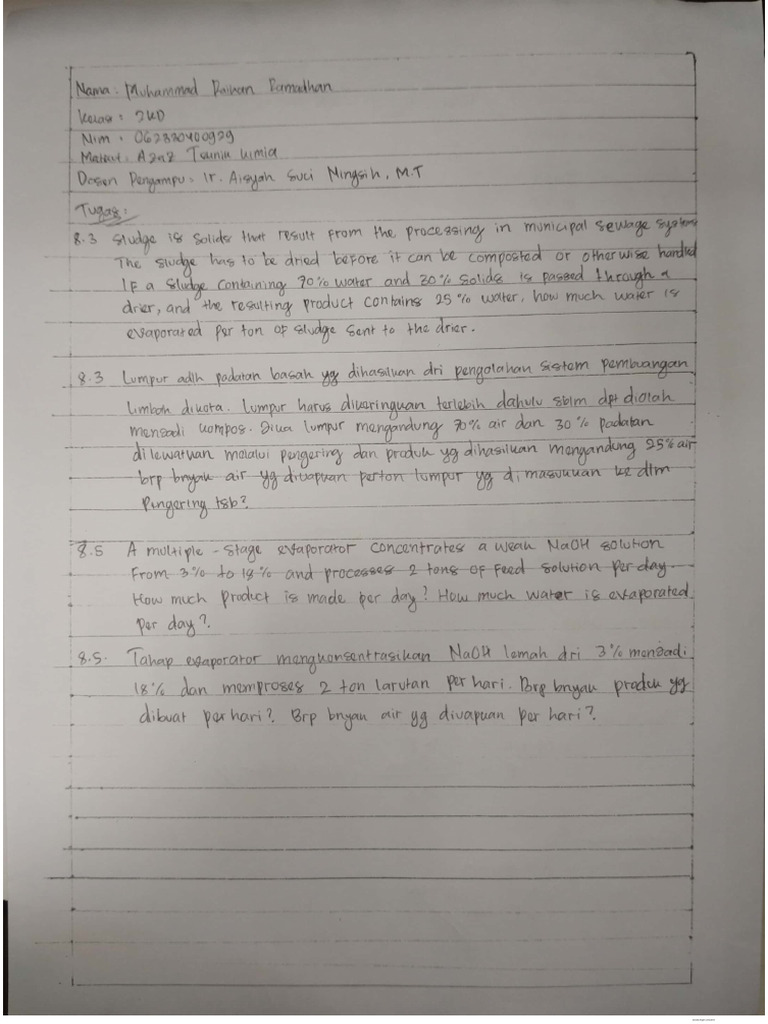 Nama : Muhammad Raihan Ramadhan
Kelas : 2KD
Nim : 062330400929
Matkul : Azas Teknik Kimia
Dosen Pengampu : Ir. Aisyah Suci Ningsih, M.T
Tugas :
8.3 Sludge is solids that result from the processing in municipal sewage systems
The sludge has to be dried before it can be composted or otherwise handled
IF a sludge containing 70% water and 30% solids is passed through a
drier, and the resulting product contains 25% water, how much water is
evaporated per ton of sludge sent to the drier.
8.3 Lumpur adlh padatan basah yg dihasilkan dri pengolahan sistem pembuangan
limbah dikota. Lumpur harus dikeringkan terlebih dahulu sblm dpt diolah
menjadi kompos. Jika lumpur mengandung 70% air dan 30% padatan
dilewatkan melalui pengering dan produk yg dihasilkan mengandung 25% air
brp bnyak air yg diuapkan perton lumpur yg dimasukkan ke dlm
Pingering tsb?
8.5 A multiple - stage evaporator concentrates a weak NaOH solution
From 3% to 18% and processes 2 tons of feed solution per day
How much product is made per day? How much water is evaporated
per day?
8.5. Tahap evaporator mengkonsentrasikan NaOH lemah dri 3% menjadi
18% dan memproses 2 ton larutan per hari. Brp bnyak produk yg
dibuat per hari? Brp bnyak air yg diuapkan per hari?